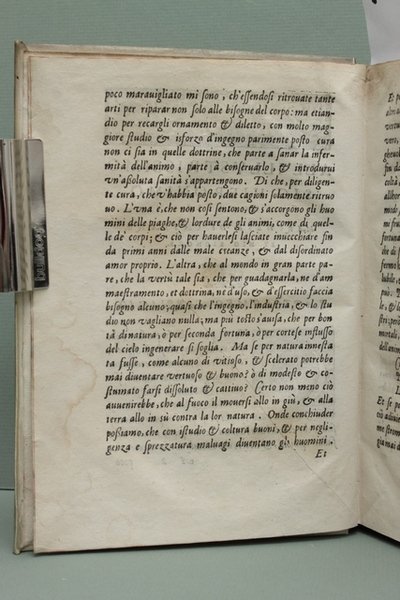 poco maravigliato mi sono, ch'essendosi ritrovate tante
arti per riparar non solo alle bisogne del corpo: ma etian-
dio per recargli ornamento & diletto, con molto mag-
giore studio & isforzo d'ingegno parimente posto cura
non ci sia in quelle dottrine, che parte a sanar la infer-
mità dell'animo, parte à conservarlo, & introdurui
vn'assoluta sanità s'appartengono. Di che, per diligen-
te cura, che v'habbia posto, due cagioni solamente ritruo
uo. L'vna è, che non così sentono, & s'accorgono gli huo
mini delle piaghe, & lordure de gli animi, come di quel-
le de' corpi; & ciò per hauerlesi lasciate inuecchiare sin
da primi anni dalle male creanze, & dal disordinato
amor proprio. L'altra, che al mondo in gran parte pa-
re, che la vertù tale sia, che per guadagnarla, ne d'am
maestramento, et dottrina, ne d'uso, & d'essercitio faccia
bisogno alcuno; quasi che l'ingegno, l'industria, & lo stu
dio non vagliano nulla; ma più tosto s'ausa, che per bon
tà di natura, ò per seconda fortuna, ò per cortese influsso
del cielo ingenerare si soglia. Ma se per natura innesta
ta fusse, come alcuno di vitioso, & scelerato potrebbe
mai diventare vertuoso & buono? ò di modesto & co-
stumato farsi dissoluto & cattiuo? Certo non meno ciò
auuenirebbe, che al fuoco il moversi allo in giù, & alla
terra allo in sù contra la lor natura. Onde conchiuder
possiamo, che con istudio & coltura buoni, & per negli-
genza e sprezzatura maluagi diuentano gli huomini.
Et